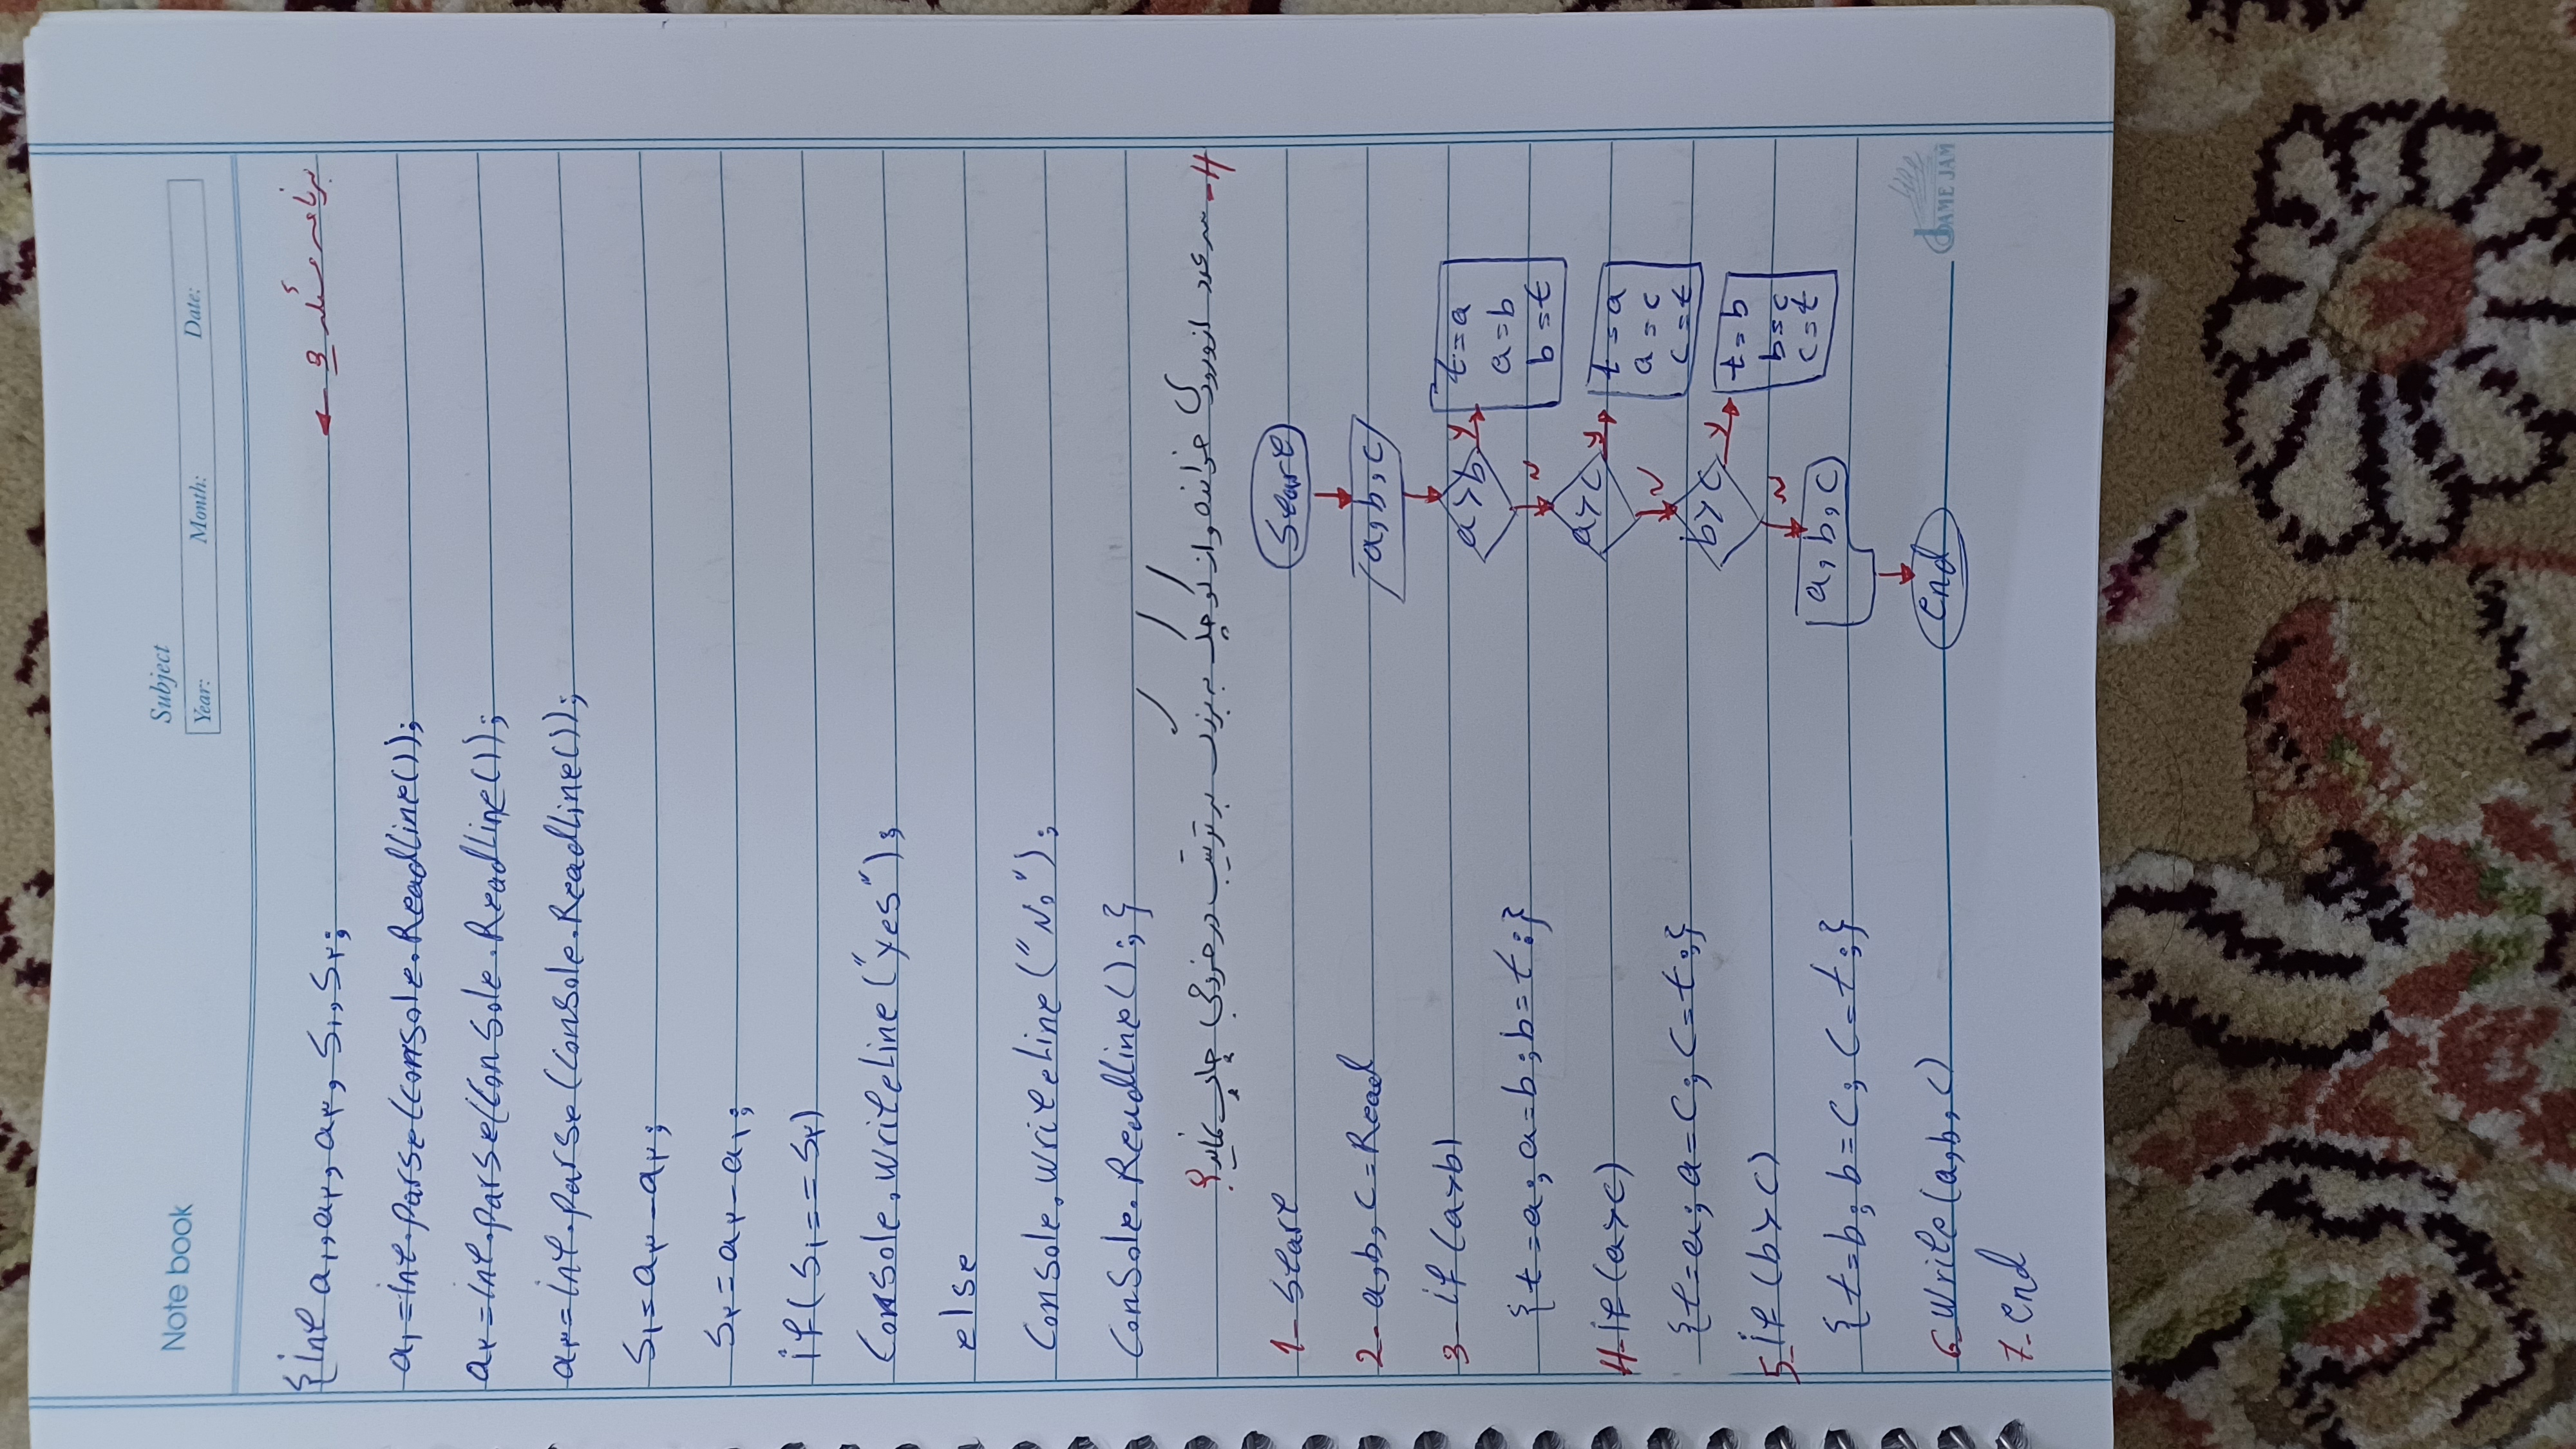 Note book
Subject
Year: Month: Date:
برنامه مسئله 3
{int a۱,a۲,a۳,S۱,S۲;
a۱=int.parse(Console.ReadLine());
a۲=int.parse(Console.ReadLine());
a۳=int.parse(Console.ReadLine());
S۱=a۲-a۱;
S۲=a۳-a۲;
if(S۱==S۲)
Console.WriteLine("yes");
else
Console.WriteLine("No");
Console.ReadLine();}
4- سه عدد از ورودی خوانده و از کوچک به بزرگ به ترتیب در خروجی چاپ نمایید؟
1- Start
2- a,b,c=Read
3- if(a>b)
{t=a;a=b;b=t;}
4-if(a>c)
{t=a;a=c;c=t;}
5-if(b>c)
{t=b;b=c;c=t;}
6-Write(a,b,c)
7-End
Start
a,b,c
a>b
Y
t=a
a=b
b=t
N
a>c
Y
t=a
a=c
c=t
N
b>c
Y
t=b
b=c
c=t
N
a,b,c
End
JAME JAM